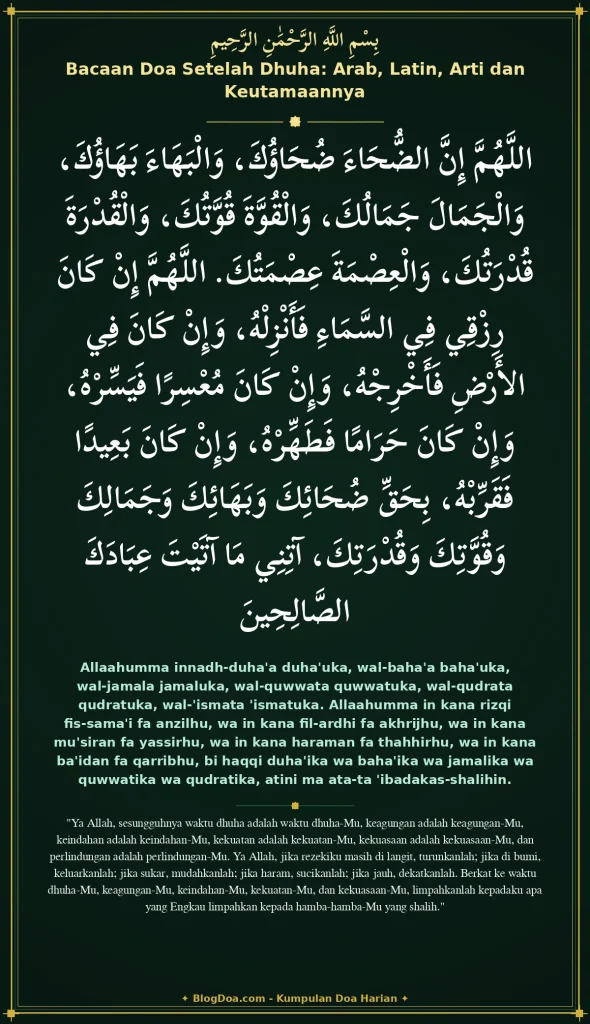 بِسْمِ اللَّهِ الرَّحْمَٰنِ الرَّحِيمِ
Bacaan Doa Setelah Dhuha: Arab, Latin, Arti dan
Keutamaannya
اللَّهُمَّ إِنَّ الضُّحَاءَ ضُحَاؤُكَ، وَالْبَهَاءَ بَهَاؤُكَ،
وَالْجَمَالَ جَمَالُكَ، وَالْقُوَّةَ قُوَّتُكَ، وَالْقُدْرَةَ
قُدْرَتُكَ، وَالْعِصْمَةَ عِصْمَتُكَ. اللَّهُمَّ إِنْ كَانَ
رِزْقِي فِي السَّمَاءِ فَأَنْزِلْهُ، وَإِنْ كَانَ فِي
الأَرْضِ فَأَخْرِجْهُ، وَإِنْ كَانَ مُعْسِرًا فَيَسِّرْهُ،
وَإِنْ كَانَ حَرَامًا فَطَهِّرْهُ، وَإِنْ كَانَ بَعِيدًا
فَقَرِّبْهُ، بِحَقِّ ضُحَائِكَ وَبَهَائِكَ وَجَمَالِكَ
وَقُوَّتِكَ وَقُدْرَتِكَ، آتِنِي مَا آتَيْتَ عِبَادَكَ
الصَّالِحِينَ
Allaahumma innadh-duha'a duha'uka, wal-baha'a baha'uka,
wal-jamala jamaluka, wal-quwwata quwwatuka, wal-qudrata
qudratuka, wal-'ismata 'ismatuka. Allaahumma in kana rizqi
fis-sama'i fa anzilhu, wa in kana fil-ardhi fa akhrijhu, wa in kana
mu'siran fa yassirhu, wa in kana haraman fa thahhirhu, wa in kana
ba'idan fa qarribhu, bi haqqi duha'ika wa baha'ika wa jamalika wa
quwwatika wa qudratika, atini ma ata-ta 'ibadakas-shalihin.
"Ya Allah, sesungguhnya waktu dhuha adalah waktu dhuha-Mu, keagungan adalah keagungan-Mu,
keindahan adalah keindahan-Mu, kekuatan adalah kekuatan-Mu, kekuasaan adalah kekuasaan-Mu, dan
perlindungan adalah perlindungan-Mu. Ya Allah, jika rezekiku masih di langit, turunkanlah; jika di bumi,
keluarkanlah; jika sukar, mudahkanlah; jika haram, sucikanlah; jika jauh, dekatkanlah. Berkat ke waktu
dhuha-Mu, keagungan-Mu, keindahan-Mu, kekuatan-Mu, dan kekuasaan-Mu, limpahkanlah kepadaku apa
yang Engkau limpahkan kepada hamba-hamba-Mu yang shalih."
✦ BlogDoa.com - Kumpulan Doa Harian ✦